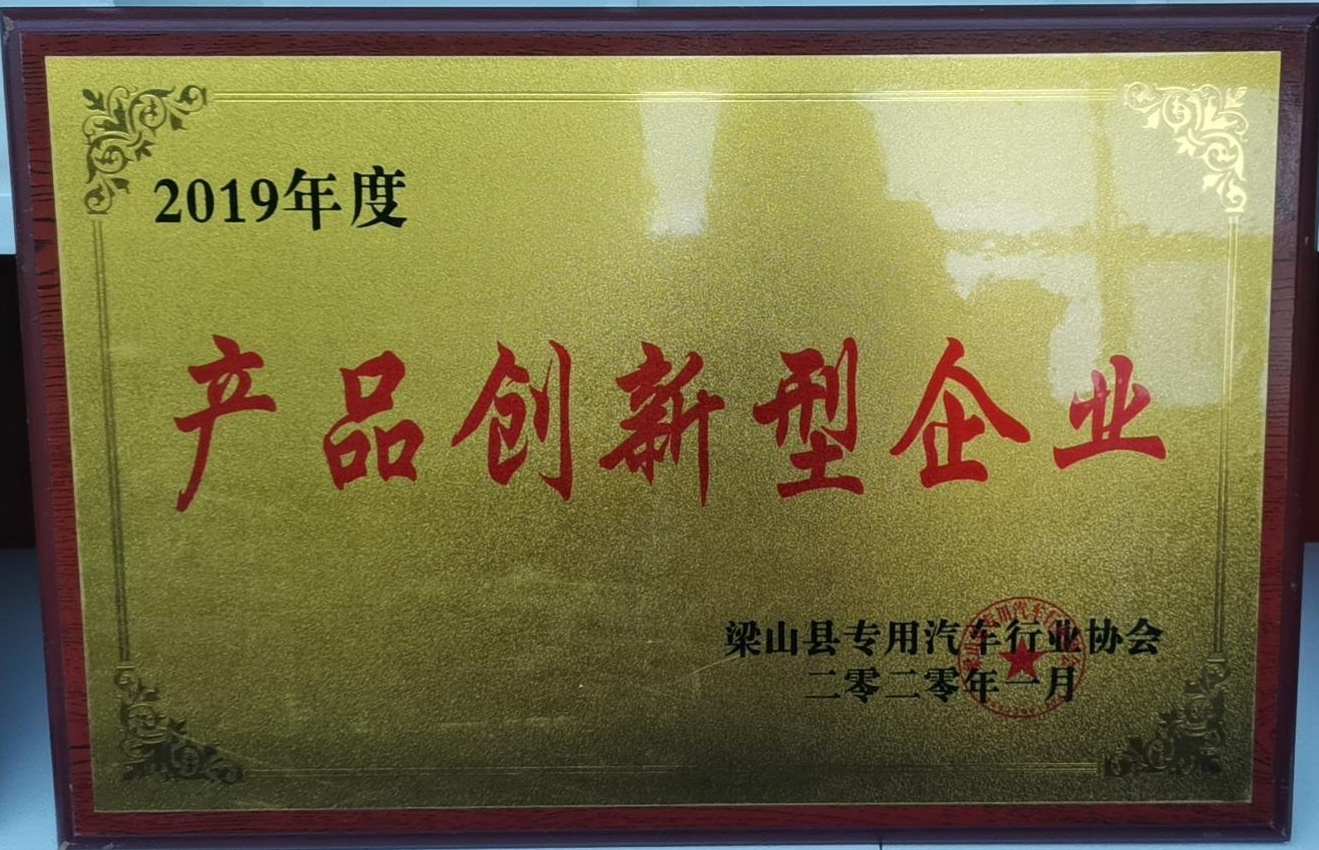 2019年度
产品创新型企业
梁山县专用汽车行业协会
二零二零年一月